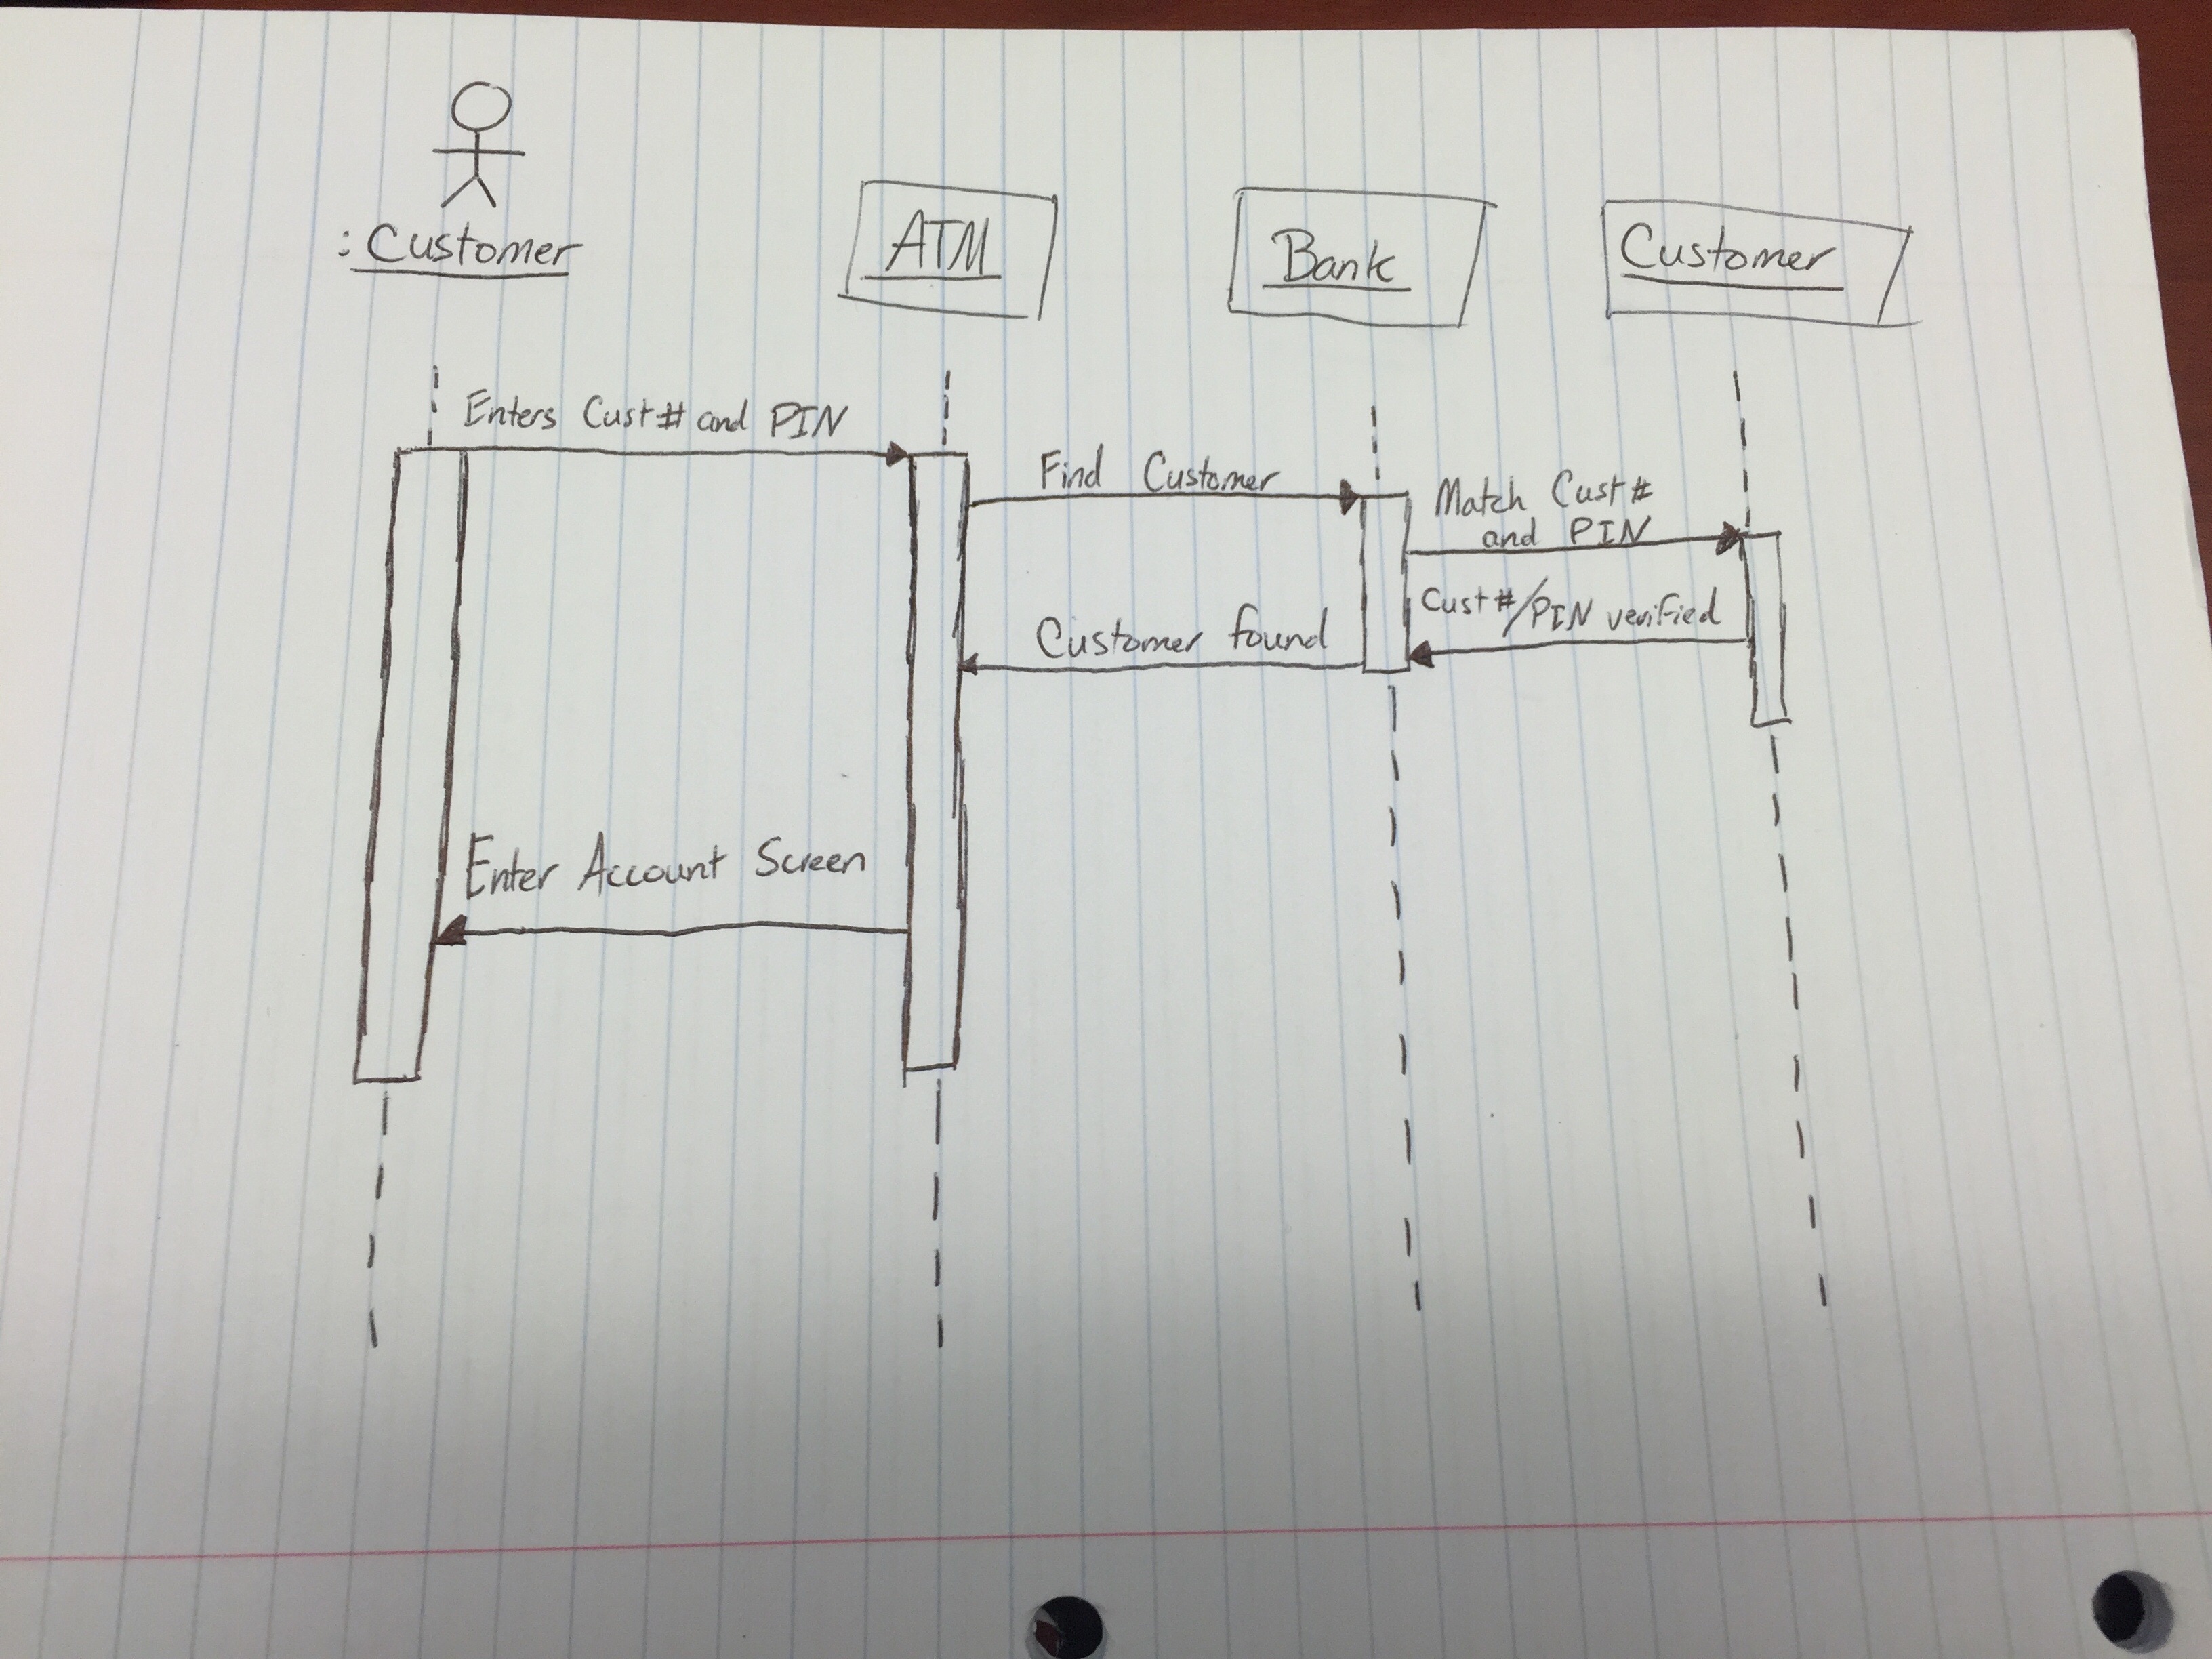 : Customer
ATM
Bank
Customer
Enters Cust# and PIN
Find Customer
Match Cust#
and PIN
Cust#/PIN verified
Customer found
Enter Account Screen